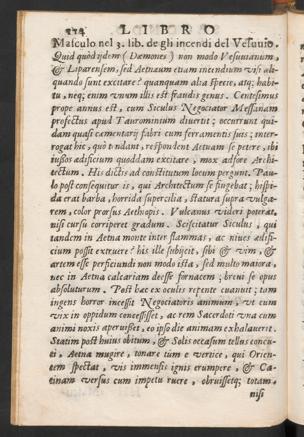 224 LIBRO
Masculo nel 3. lib. de gli incendi del Vesuvio.
Quid quòd ijdem (Dæmones) non modo Vesuuianum,
& Liparensem, sed Aetnæum etiam incendium visi ali-
quando sunt excitare? quanquam alia specie, atq; habi-
tu, neq; enim vnum illis est fraudis genus. Centesimus
prope annus est, cum Siculus Negociator Messanam
profectus apud Taurominium diuertit; occurrunt qui-
dam quasi cementarij fabri cum ferramentis suis; inter-
rogat hic, quò tendant, respondent Aetnam se petere, ibi
iussos ædificium quoddam excitare, mox adfore Archi-
tectum. His dictis ad constitutum locum pergunt. Pau-
lo post consequitur is, qui Architectum se fingebat; hispi-
da erat barba, horrida supercilia, statura supra vulga-
rem, color prorsus Aethiopis. Vulcanus videri poterat,
nisi cursu corriperet gradum. Sciscitatur Siculus, qui
tandem in Aetna monte inter flammas, ac niues ædifi-
cium possit extruere? his ille subijcit, sibi & vim, &
artem esse perficiundi non modi ista, sed multo maiora,
nec in Aetna calcariam deesse fornacem; breui se opus
absoluturum. Post hæc ex oculis repente euanuit; tam
ingens horror incessit Negociatoris animum, vt cum
vix in oppidum concessisset, ac rem Sacerdoti vna cum
animi noxis aperuisset, eo ipso die animam exhalauerit.
Statim post huius obitum, & Solis occasum tellus concu-
ti, Aetna mugire, tonare tùm e vertice, qui Orien-
tem spectat, vis immensis ignis erumpere, & Ca-
tinam versus cum impetu ruere, obruissetq; totam,
nisi